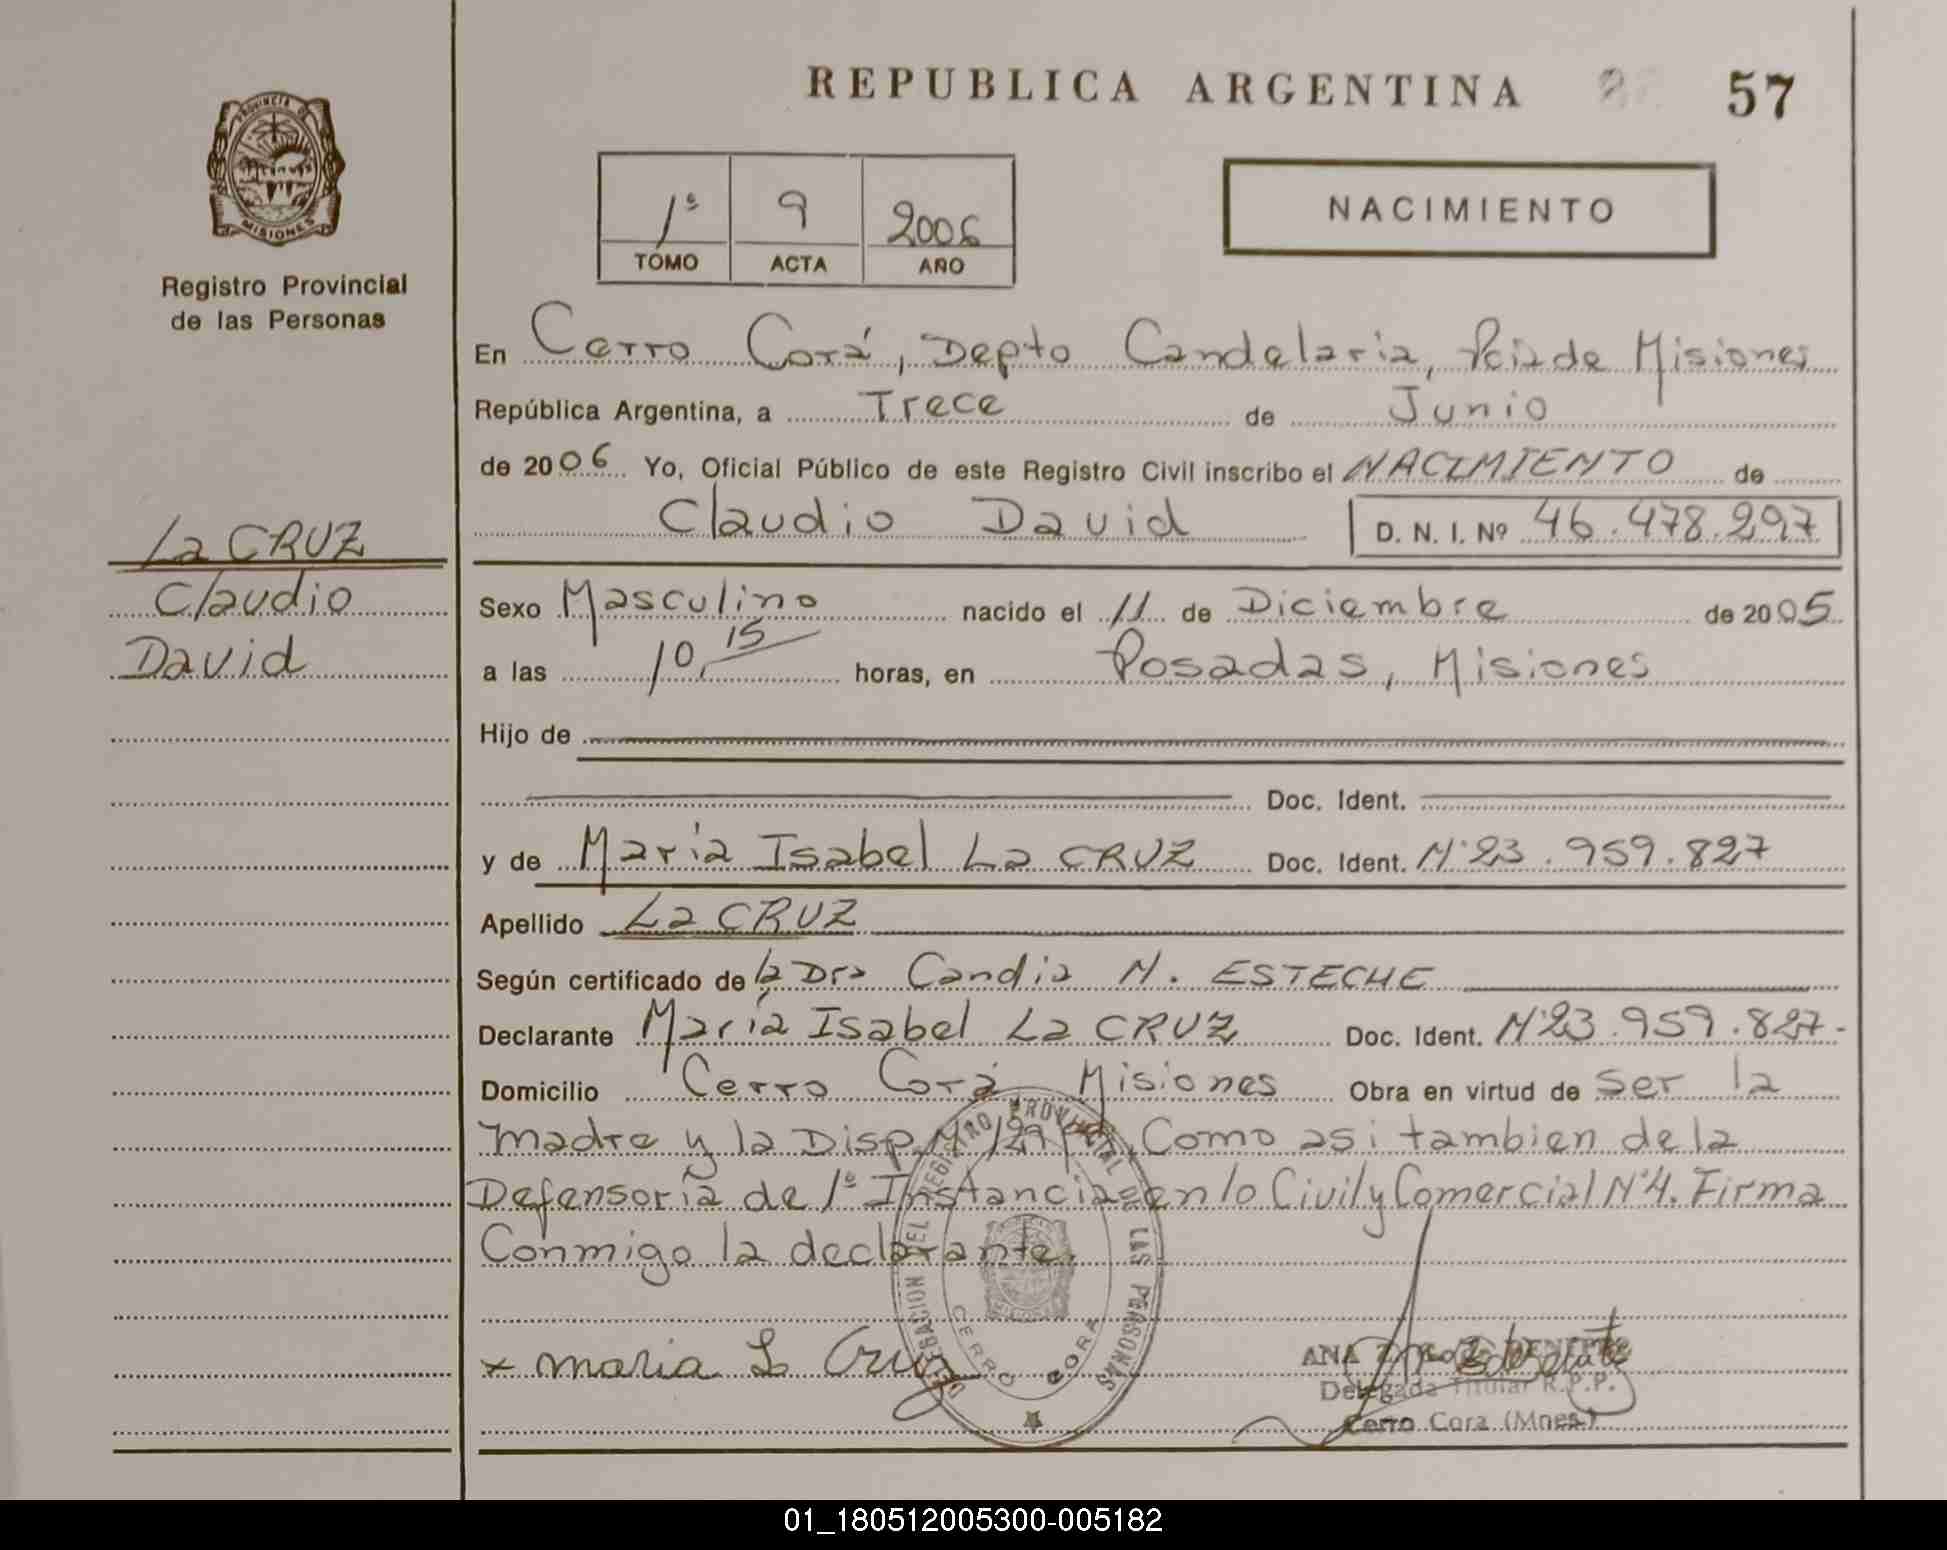 REPUBLICA ARGENTINA 57
PROVINCIA DE MISIONES
Registro Provincial
de las Personas
1º 9 2006
TOMO ACTA AÑO
NACIMIENTO
En Cerro Corá, Depto Candelaria, Pcia de Misiones
República Argentina, a Trece de Junio
de 2006 Yo, Oficial Público de este Registro Civil inscribo el NACIMIENTO de
Claudio David D. N. I. Nº 46.478.297
La CRUZ
Claudio
David
Sexo Masculino nacido el 11 de Diciembre de 2005
a las 10,15 horas, en Posadas, Misiones
Hijo de
Doc. Ident.
y de María Isabel La CRUZ Doc. Ident. Nº 23.959.827
Apellido La CRUZ
Según certificado de la Dra Candia M. ESTECHE
Declarante María Isabel La CRUZ Doc. Ident. Nº 23.959.827-
Domicilio Cerro Corá Misiones Obra en virtud de ser la
madre y la Disp. Como asi tambien de la
Defensoría de 1º Instancia en lo Civil y Comercial Nº 4. Firma
Conmigo la declarante.
DELEGACION DEL REGISTRO PROVINCIAL DE LAS PERSONAS
CERRO CORA
x maria L Cruz
ANA
Delegada Titular R.P.P.
Cerro Cora (Mnes.)
01_180512005300-005182